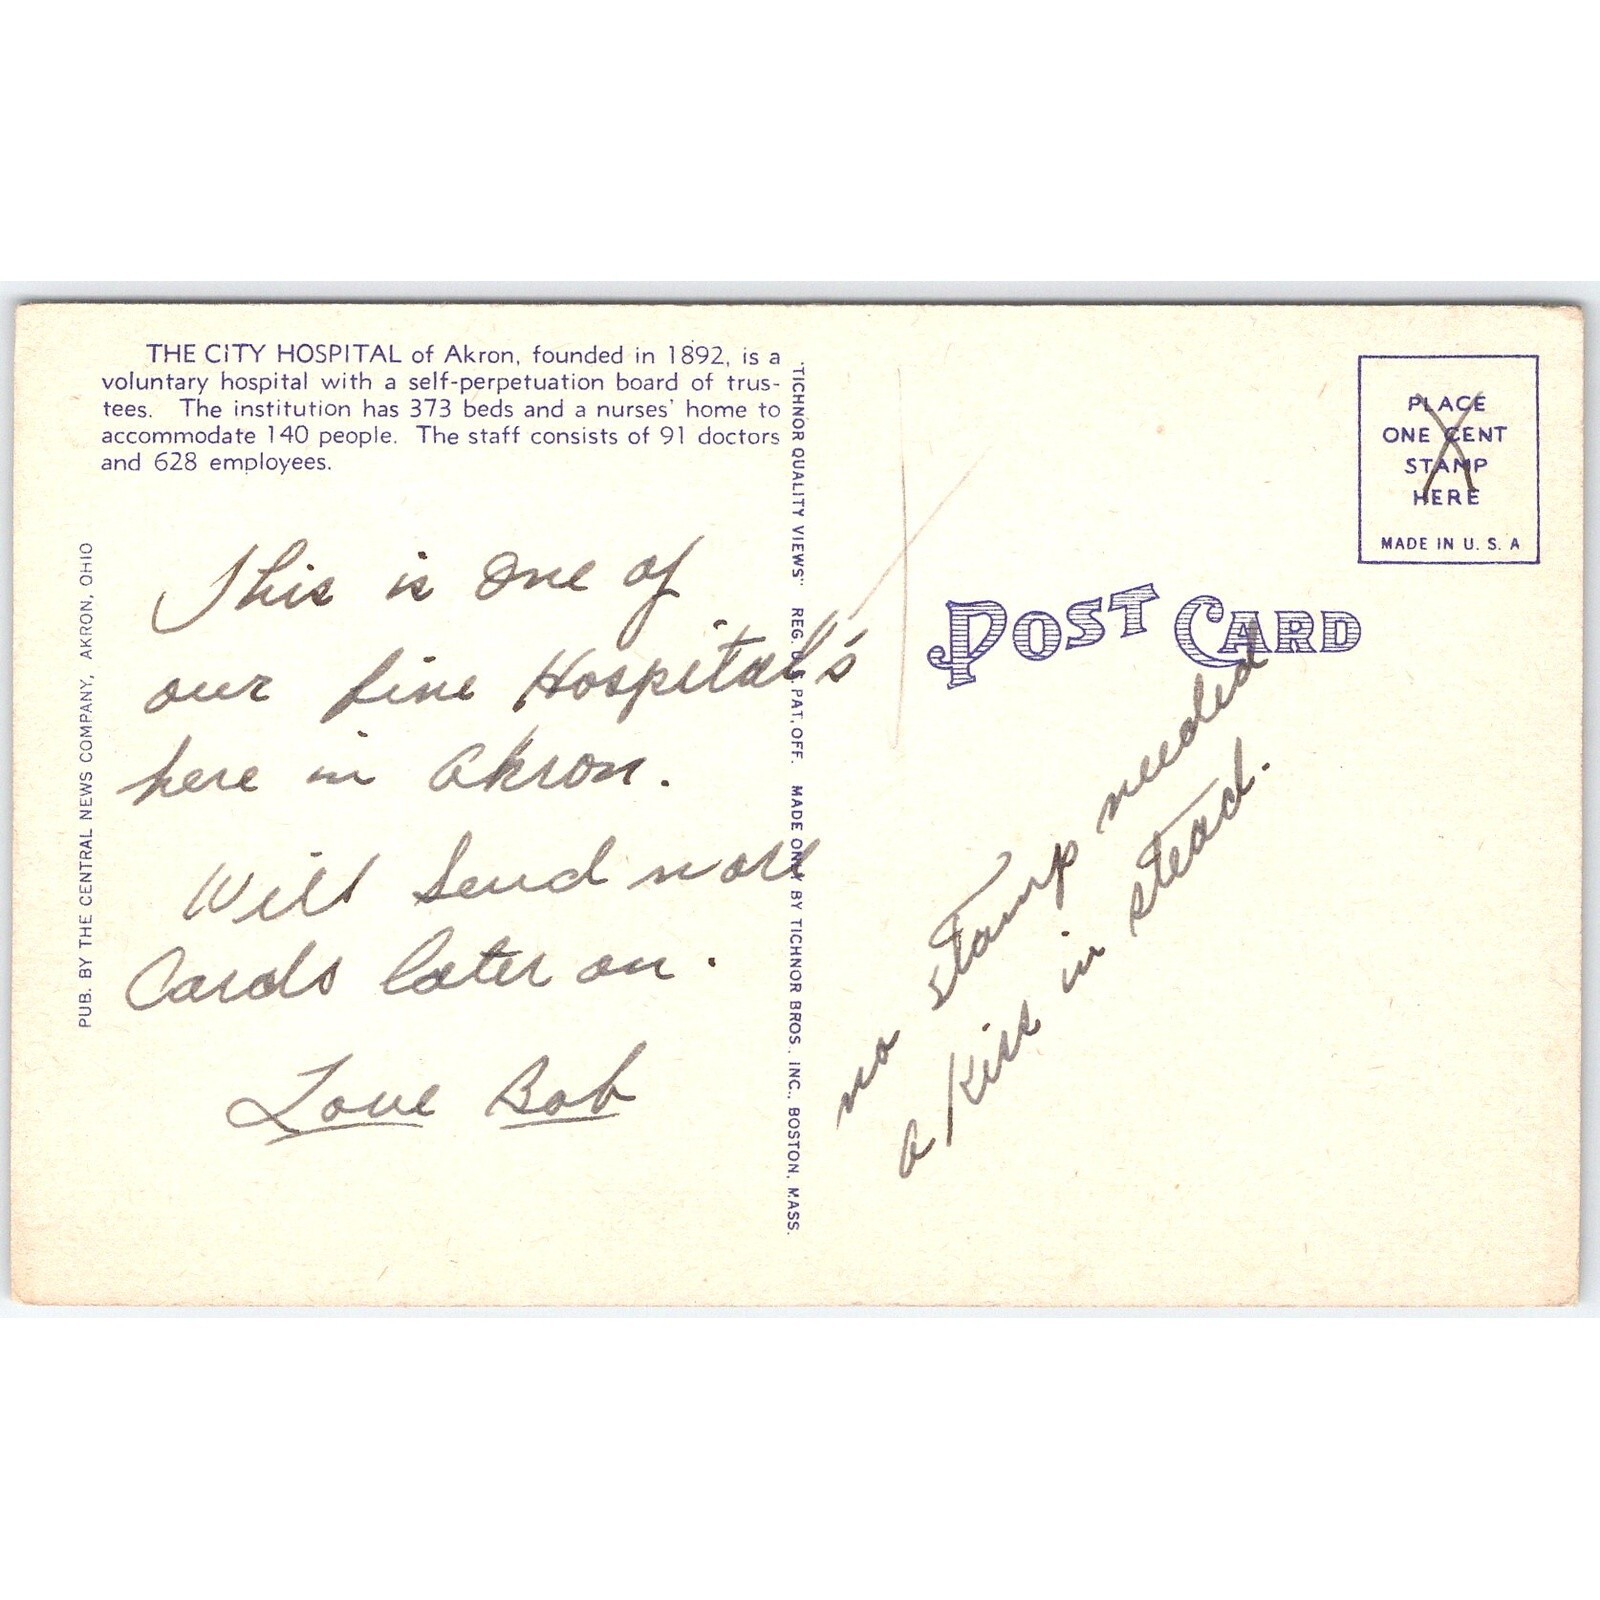 THE CITY HOSPITAL of Akron, founded in 1892, is a
voluntary hospital with a self-perpetuation board of trus-
tees. The institution has 373 beds and a nurses' home to
accommodate 140 people. The staff consists of 91 doctors
and 628 employees.
PUB. BY THE CENTRAL NEWS COMPANY, AKRON, OHIO
This is one of
our fine Hospital's
here in Akron.
Will Send more
Cards later on.
Love Bob
"TICHNOR QUALITY VIEWS" REG. U. S. PAT. OFF. MADE ONLY BY TICHNOR BROS., INC., BOSTON, MASS.
PLACE
ONE CENT
STAMP
HERE
MADE IN U. S. A
POST CARD
no stamp needed
a Kiss in stead.